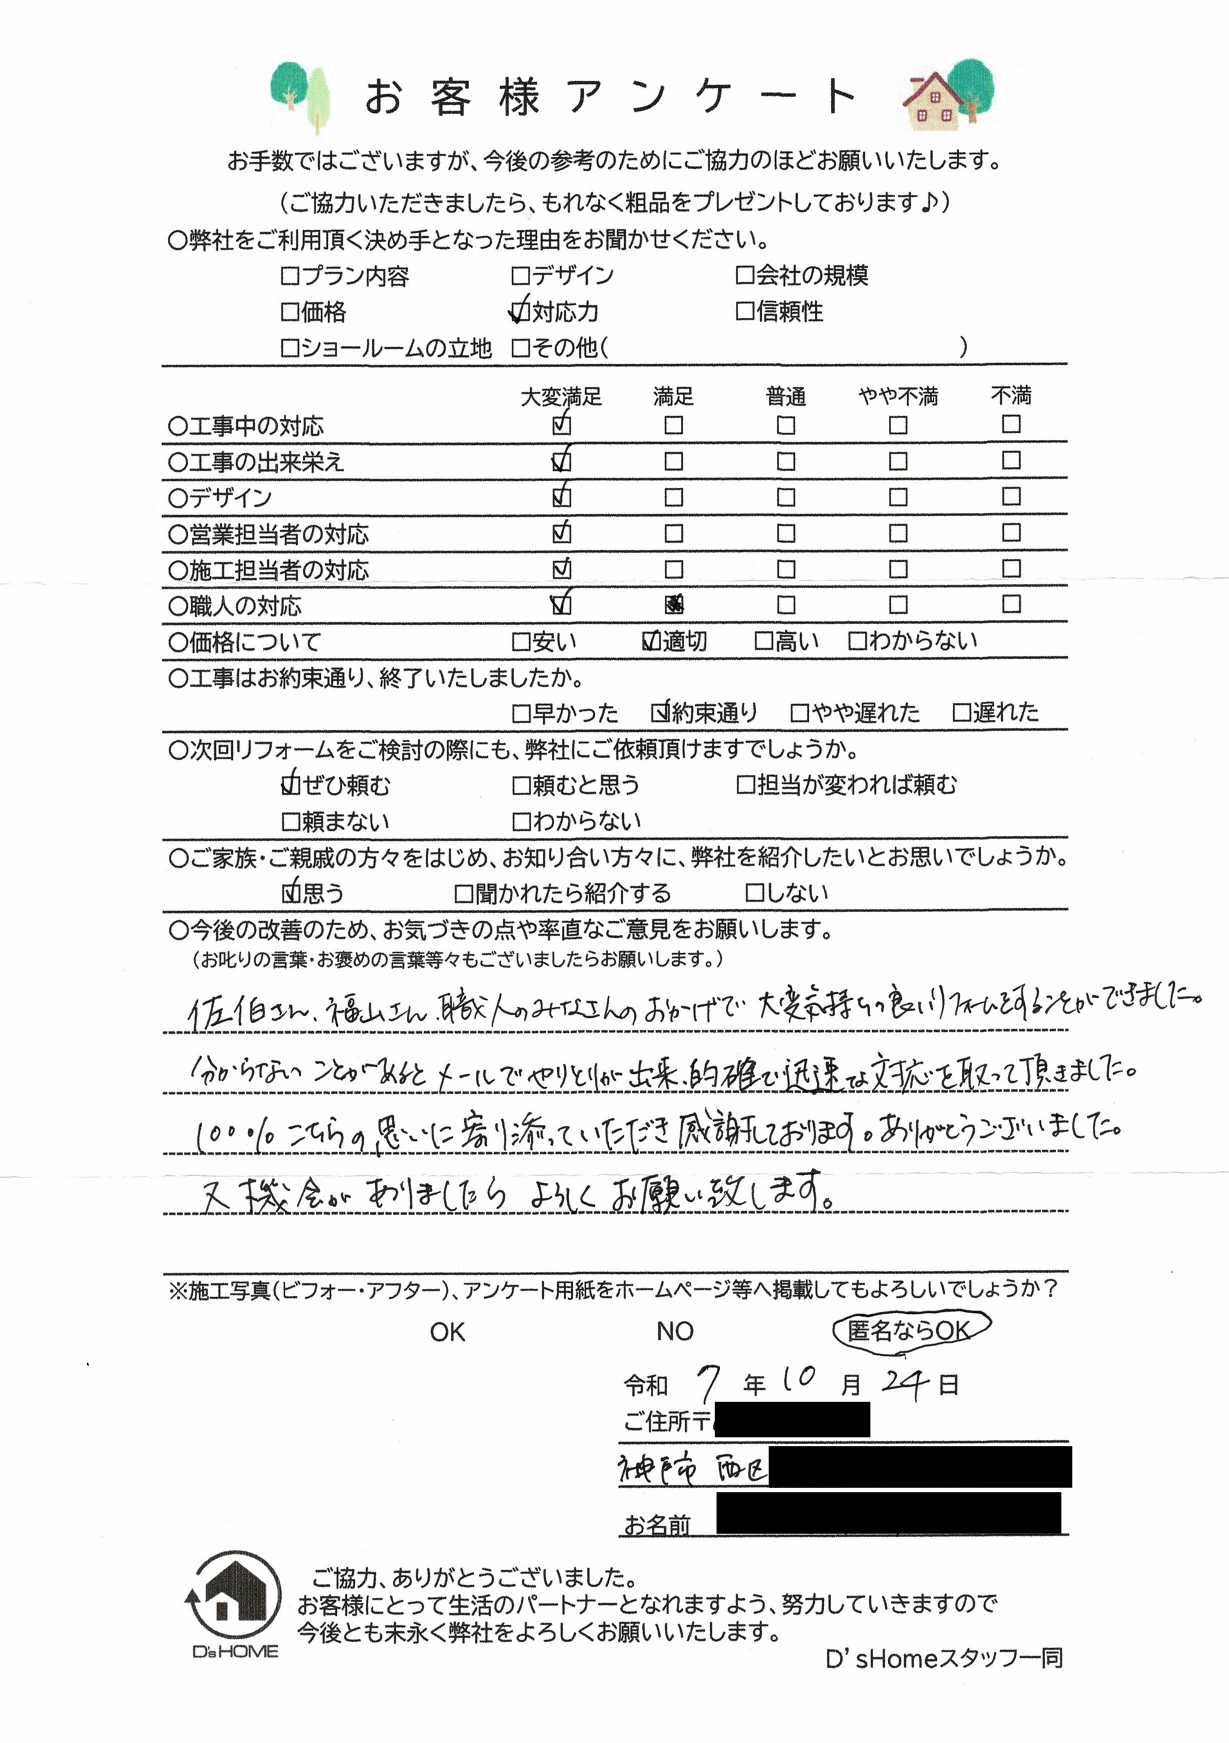 お客様アンケート
お手数ではございますが、今後の参考のためにご協力のほどお願いいたします。
（ご協力いただきましたら、もれなく粗品をプレゼントしております♪）
○弊社をご利用頂く決め手となった理由をお聞かせください。
□プラン内容 □デザイン □会社の規模
□価格 ☑対応力 □信頼性
□ショールームの立地 □その他( )
大変満足 満足 普通 やや不満 不満
○工事中の対応 ☑ □ □ □ □
○工事の出来栄え ☑ □ □ □ □
○デザイン ☑ □ □ □ □
○営業担当者の対応 ☑ □ □ □ □
○施工担当者の対応 ☑ □ □ □ □
○職人の対応 ☑ ■ □ □ □
○価格について □安い ☑適切 □高い □わからない
○工事はお約束通り、終了いたしましたか。
□早かった ☑約束通り □やや遅れた □遅れた
○次回リフォームをご検討の際にも、弊社にご依頼頂けますでしょうか。
☑ぜひ頼む □頼むと思う □担当が変われば頼む
□頼まない □わからない
○ご家族・ご親戚の方々をはじめ、お知り合い方々に、弊社を紹介したいとお思いでしょうか。
☑思う □聞かれたら紹介する □しない
○今後の改善のため、お気づきの点や率直なご意見をお願いします。
（お叱りの言葉・お褒めの言葉等々もございましたらお願いします。）
佐伯さん、福山さん、職人のみなさんのおかげで大変気持ちの良いリフォームをすることができました。
分からないことがあるとメールでやりとりが出来、的確で迅速な対応を取って頂きました。
100%こちらの思いに寄り添っていただき感謝しております。ありがとうございました。
又機会がありましたらよろしくお願い致します。
※施工写真（ビフォー・アフター）、アンケート用紙をホームページ等へ掲載してもよろしいでしょうか？
OK NO 匿名ならOK
令和 7 年 10 月 24 日
ご住所〒
神戸市 西区
お名前
ご協力、ありがとうございました。
お客様にとって生活のパートナーとなれますよう、努力していきますので
今後とも末永く弊社をよろしくお願いいたします。
D's HOME
D'sHomeスタッフ一同